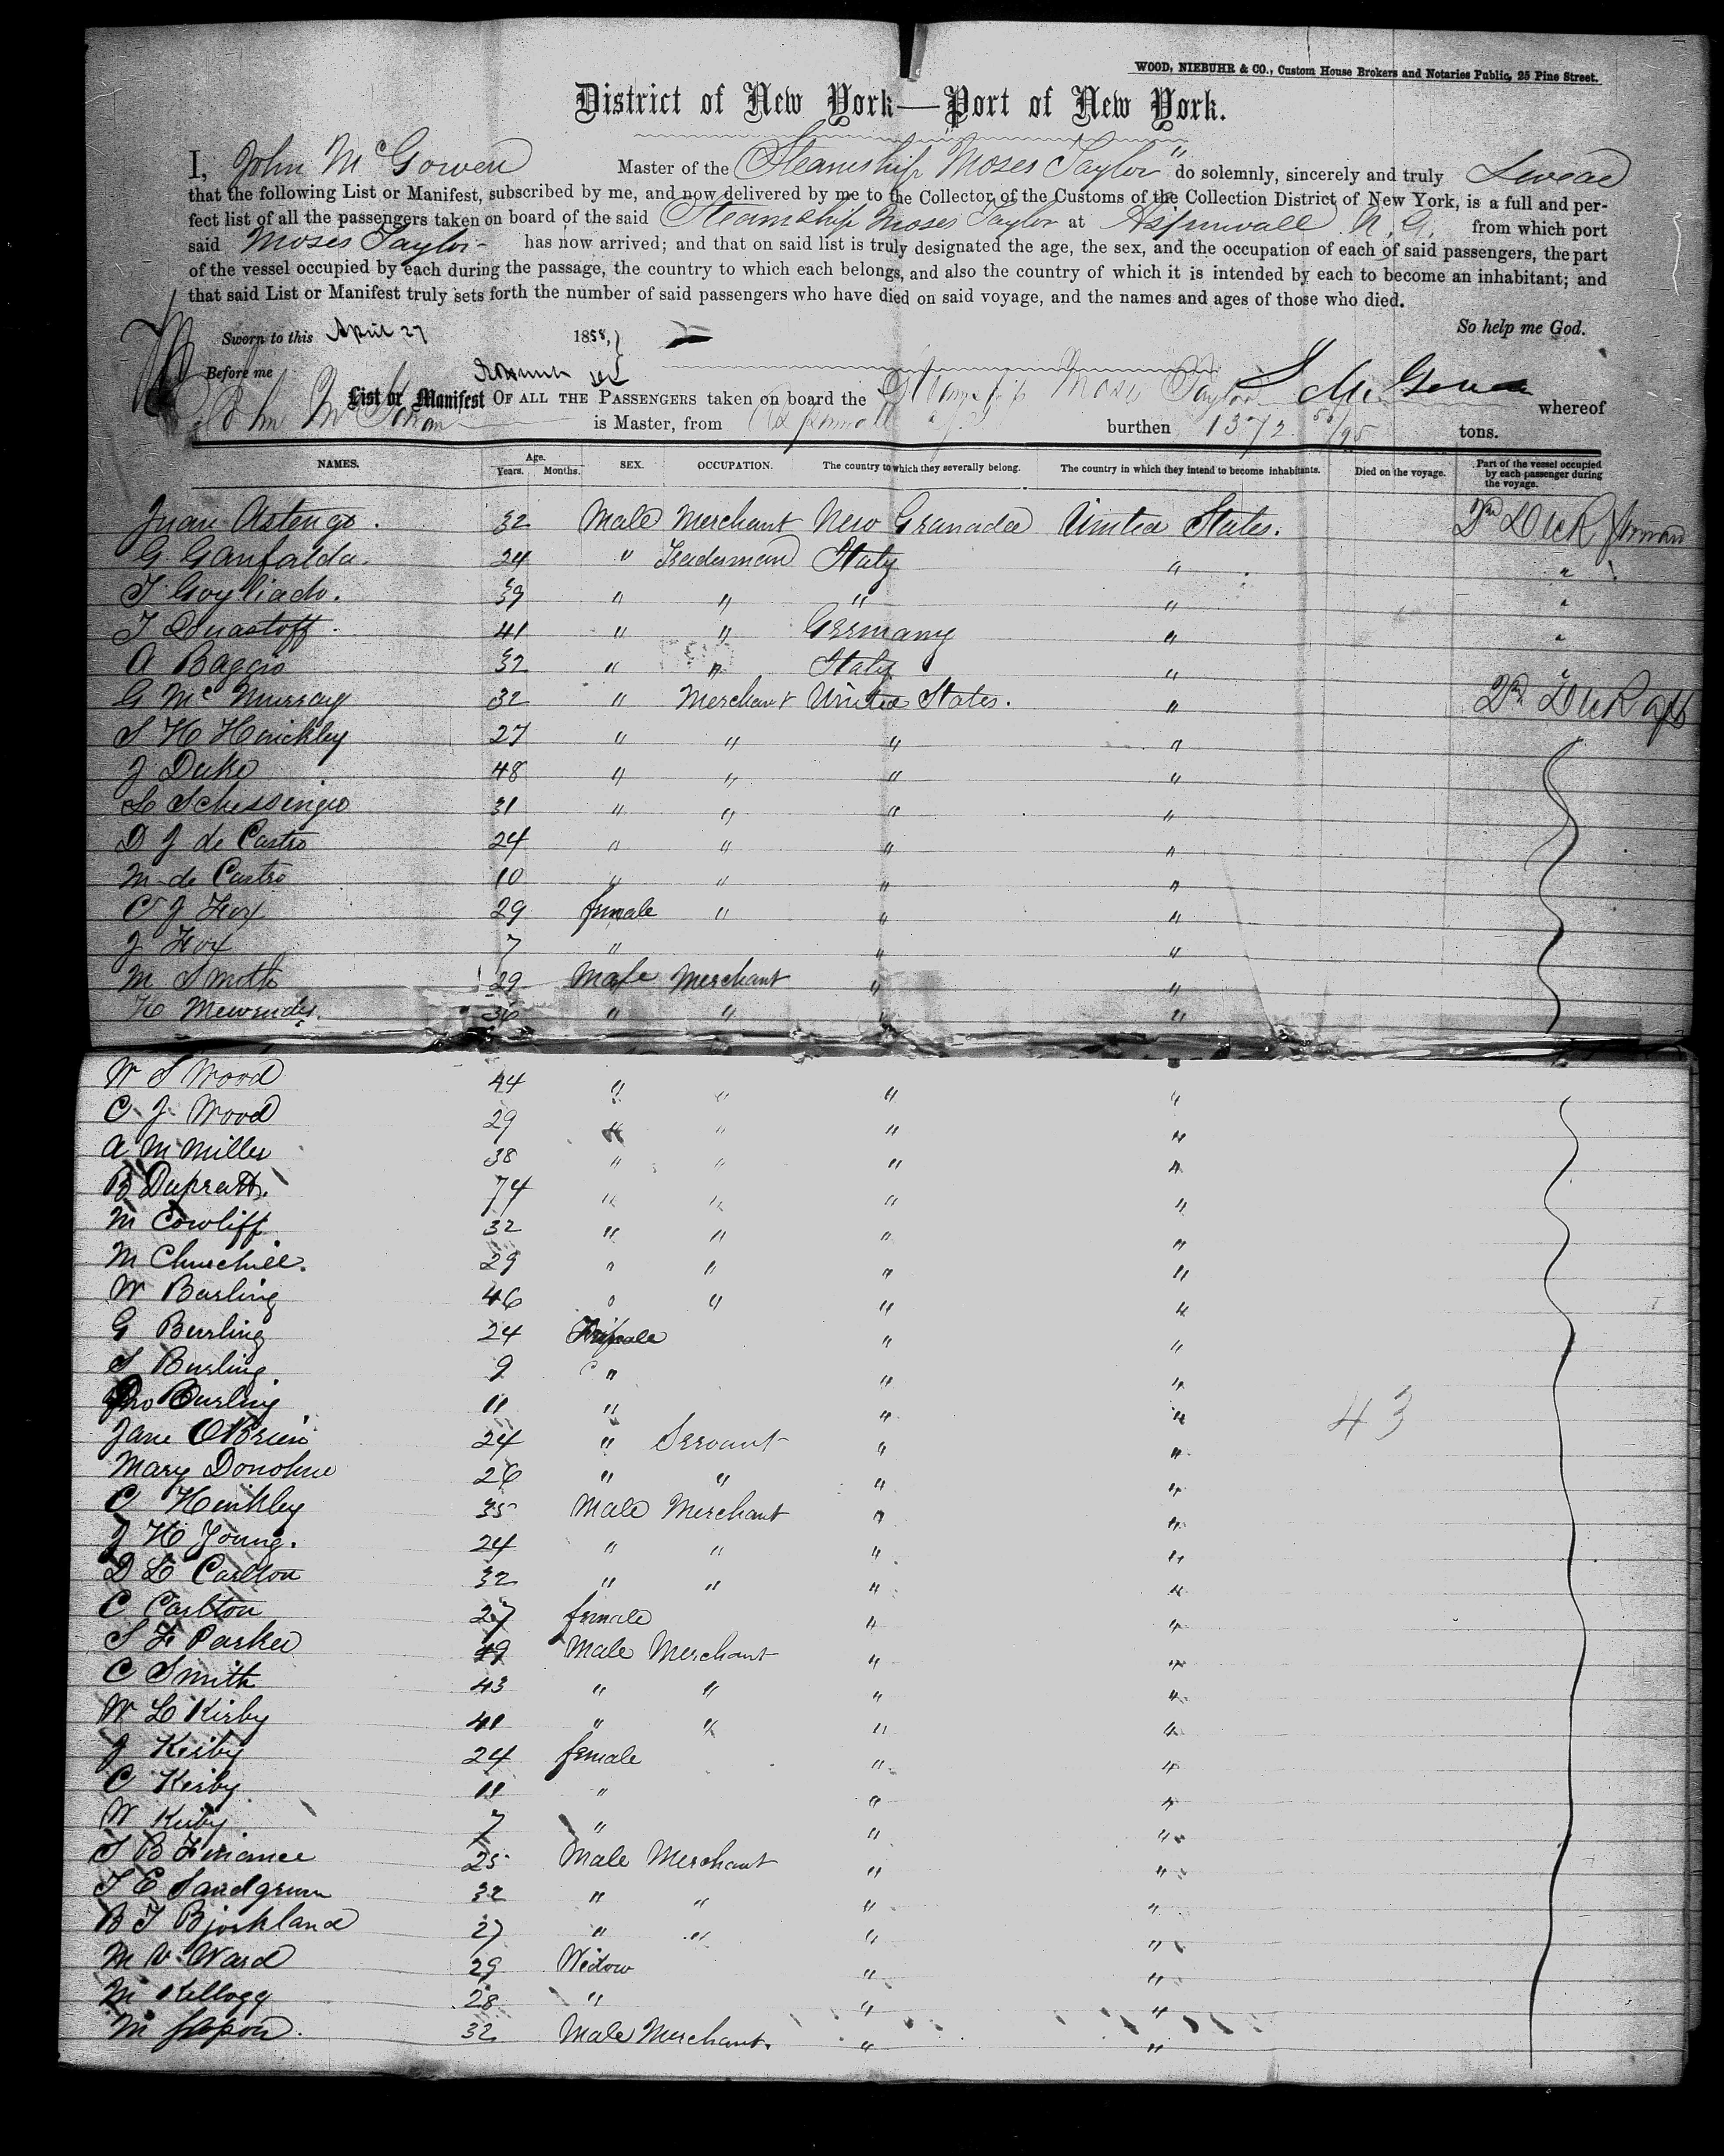 WOOD, NIEBUHR & CO., Custom House Brokers and Notaries Public, 25 Pine Street.
District of New York—Port of New York.
I, John McGowen Master of the Steamship "Moses Taylor" do solemnly, sincerely and truly Swear
that the following List or Manifest, subscribed by me, and now delivered by me to the Collector of the Customs of the Collection District of New York, is a full and per-
fect list of all the passengers taken on board of the said Steamship Moses Taylor at Aspinwall N. G. from which port
said Moses Taylor has now arrived; and that on said list is truly designated the age, the sex, and the occupation of each of said passengers, the part
of the vessel occupied by each during the passage, the country to which each belongs, and also the country of which it is intended by each to become an inhabitant; and
that said List or Manifest truly sets forth the number of said passengers who have died on said voyage, and the names and ages of those who died.
So help me God.
Sworn to this April 27 1858,
Before me
J McGowen
List or Manifest OF ALL THE PASSENGERS taken on board the Steamship Moses Taylor whereof
John McGowan is Master, from Aspinwall burthen 1372 tons.
NAMES. Age. Years. Months. SEX. OCCUPATION. The country to which they severally belong. The country in which they intend to become inhabitants. Died on the voyage. Part of the vessel occupied by each passenger during the voyage.
Juan Astengo. 32 Male Merchant New Granada United States. 2n Deck forward
G Ganfalda. 24 " Tradesman Italy " "
T. Gogliado. 39 " " " " "
T Quastoff. 41 " " Germany " "
A Baggio 32 " " Italy " "
G McMurray 32 " Merchant United States. " 2n Deck aft
S H Hinckley 27 " " " "
J Duke 48 " " " "
L Schessingio 31 " " " "
D J de Castro 24 " " " "
M de Castro 10 " " " "
C J Fox 29 female " " "
J Fox 7 " " "
M Smith 29 Male Merchant " "
H 36 " " " "
W S Wood 44 " " " "
C J Wood 29 " " " "
A M Miller 38 " " " "
B Dupratt. 74 " " " "
M Cowliff 32 " " " "
M Churchill. 29 " " " "
W Burling 46 " " " "
G Burling 24 Female " "
S Burling 9 " " "
Jno Burling 11 " " "
43
Jane O'Brien 24 " Servant " "
Mary Donohue 26 " " " "
C Hinkley 35 Male Merchant " "
J H Young. 24 " " " "
D L Carlton 32 " " " "
C Carlton 27 female " "
S F Parker 49 Male Merchant " "
C Smith 43 " " " "
W L Kirby 41 " " " "
J Kirby 24 female " "
C Kirby 11 " " "
W Kirby 7 " " "
S B Finance 25 Male Merchant " "
T E Sandgrum 32 " " " "
B T Bjorkland 27 " " " "
M V Ward 29 Widow " "
M Kellogg 28 " " "
M 32 Male Merchant. " "